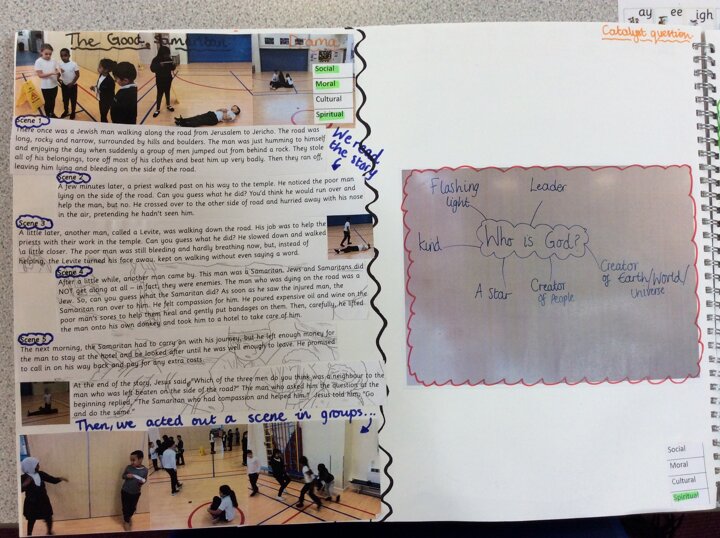 The Good Samaritan
Drama
Social
Moral
Cultural
Spiritual
Scene 1
There once was a Jewish man walking along the road from Jerusalem to Jericho. The road was
long, rocky and narrow, surrounded by hills and boulders. The man was just humming to himself
and enjoying the day when suddenly a group of men jumped out from behind a rock. They stole
all of his belongings, tore off most of his clothes and beat him up very badly. Then they ran off,
leaving him lying and bleeding on the side of the road.
We read
the story
Scene 2
A few minutes later, a priest walked past on his way to the temple. He noticed the poor man
lying on the side of the road. Can you guess what he did? You'd think he would run over and
help the man, but no. He crossed over to the other side of road and hurried away with his nose
in the air, pretending he hadn't seen him.
Scene 3
A little later, another man, called a Levite, was walking down the road. His job was to help the
priests with their work in the temple. Can you guess what he did? He slowed down and walked
a little closer. The poor man was still bleeding and hardly breathing now, but, instead of
helping, the Levite turned his face away, kept on walking without even saying a word.
Scene 4
After a little while, another man came by. This man was a Samaritan. Jews and Samaritans did
NOT get along at all – in fact, they were enemies. The man who was dying on the road was a
Jew. So, can you guess what the Samaritan did? As soon as he saw the injured man, the
Samaritan ran over to him. He felt compassion for him. He poured expensive oil and wine on the
poor man's sores to help them heal and gently put bandages on them. Then, carefully, he lifted
the man onto his own donkey and took him to a hotel to take care of him.
Scene 5
The next morning, the Samaritan had to carry on with his journey, but he left enough money for
the man to stay at the hotel and be looked after until he was well enough to leave. He promised
to call in on his way back and pay for any extra costs.
At the end of the story, Jesus said, "Which of the three men do you think was a neighbour to the
man who was left beaten on the side of the road?" The man who asked him the question at the
beginning replied, "The Samaritan who had compassion and helped him." Jesus told him, "Go
and do the same."
Then, we acted out a scene in groups...
ay ee igh
Catalyst question
Flashing
light
Leader
Kind
Who is God?
A Star
Creator
of People
Creator
of Earth/World/
Universe
Social
Moral
Cultural
Spiritual